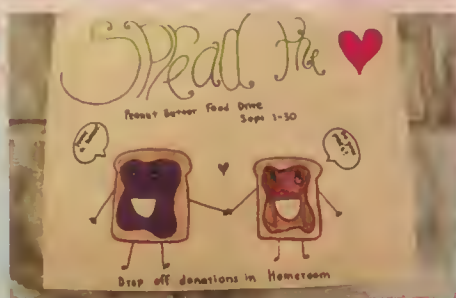 Spread the
Peanut Butter Food Drive
Sept 1-30
Drop off donations in Homeroom